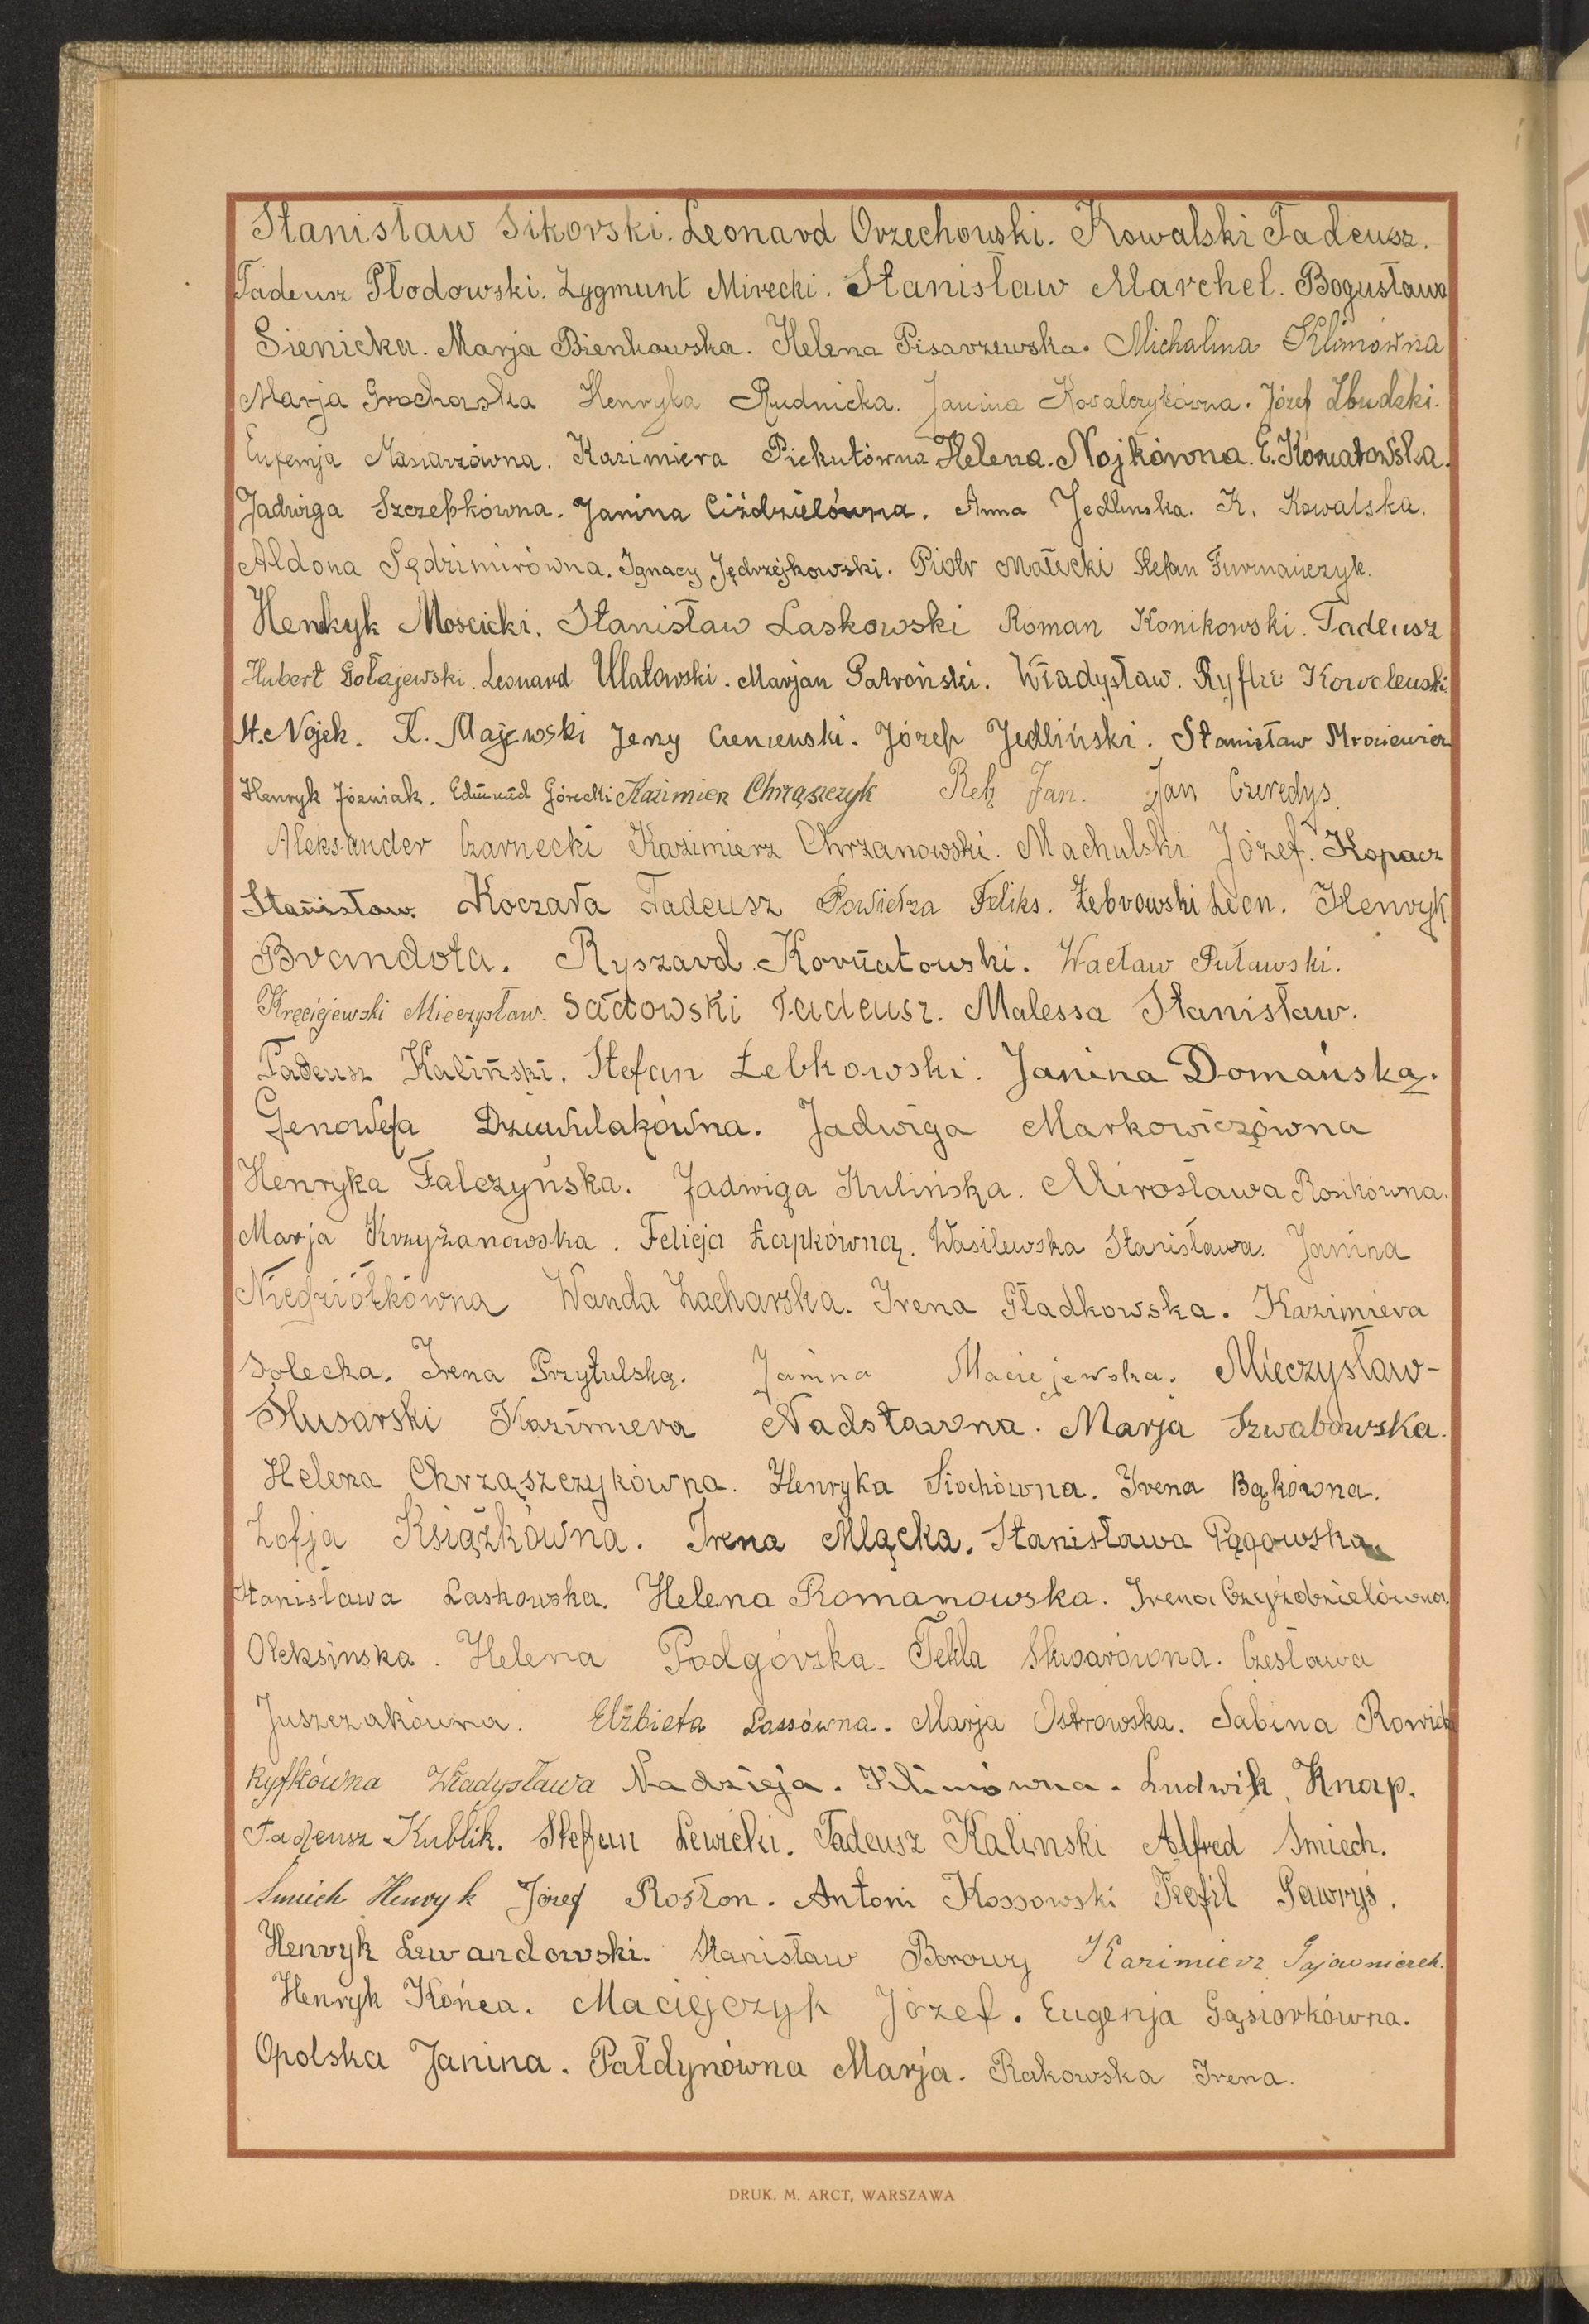 Stanisław Sikorski. Leonard Orzechowski. Kowalski Tadeusz.
Tadeusz Płodowski. Zygmunt Mirecki. Stanisław Marchel. Bogusława
Sienicka. Marja Bienkowska. Helena Pisarzewska. Michalina Klimówna
Marja Grochowska Henryka Rudnicka. Janina Kowalczykówna. Józef
Eufemja Kazimiera Piekutówna Helena. Nojkówna. E. Kornatowska.
Jadwiga Szczepkówna. Janina Ciździelówna. Anna Jedlinska. K. Kowalska.
Aldona Sędzimirówna. Ignacy Jędrzejkowski. Piotr Małecki Stefan Furmańczyk.
Henryk Moscicki. Stanisław Laskowski Roman Konikowski. Tadeusz
Hubert Gołajewski. Leonard Ulatowski. Marjan Patroński. Władysław. Ryfka Kowalewski
St. Nojek. K. Majewski Jerzy Józef Jedliński. Stanisław Mroziewicz
Henryk Józwiak. Edmund Górecki Kazimierz Chrząszczyk Reh Jan. Jan Czeredys.
Aleksander Czarnecki Kazimierz Chrzanowski. Machulski Józef. Kopacz
Stanisław. Koczała Tadeusz Powierza Feliks. Żebrowski Leon. Henryk
Brandota. Ryszard Kornatowski. Wacław Puławski.
Kręciejewski Mieczysław. Sadowski Tadeusz. Malessa Stanisław.
Tadeusz Kaliński. Stefan Łebkowski. Janina Domańska.
Genowefa Dziewulakówna. Jadwiga Markowiczówna
Henryka Falczyńska. Jadwiga Kulińska. Mirosława Rosikówna.
Marja Krzyżanowska. Felicja Łapkówna. Wasilewska Stanisława. Janina
Niedziółkówna Wanda Zacharska. Irena Gładkowska. Kazimiera
Solecka. Irena Przytulska. Janina Maciejewska. Mieczysław-
Ślusarski Kazimiera Nadstawna. Marja Szwabowska.
Helena Chrząszczykówna. Henryka Siochówna. Irena Bąkówna.
Zofja Książkówna. Irena Mlącka. Stanisława Pągowska.
Stanisława Laskowska. Helena Romanowska. Irena Czyździelówna.
Oleksinska. Helena Podgórska. Tekla Skwarówna. Czesława
Juszczakówna. Elżbieta Lassówna. Marja Ostrowska. Sabina Rowick
Ryfkówna Władysława Nadzieja. Klimówna. Ludwik Knap.
Tadeusz Kublik. Stefan Lewicki. Tadeusz Kalinski Alfred Smiech.
Smiech Henryk Józef Rosłon. Antoni Kossowski Teofil Gawryś.
Henryk Lewandowski. Stanisław Borowy Kazimierz Gajowniczek.
Henryk Końca. Maciejczyk Józef. Eugenja Gąsiorkówna.
Opolska Janina. Pałdynówna Marja. Rakowska Irena.
DRUK. M. ARCT, WARSZAWA